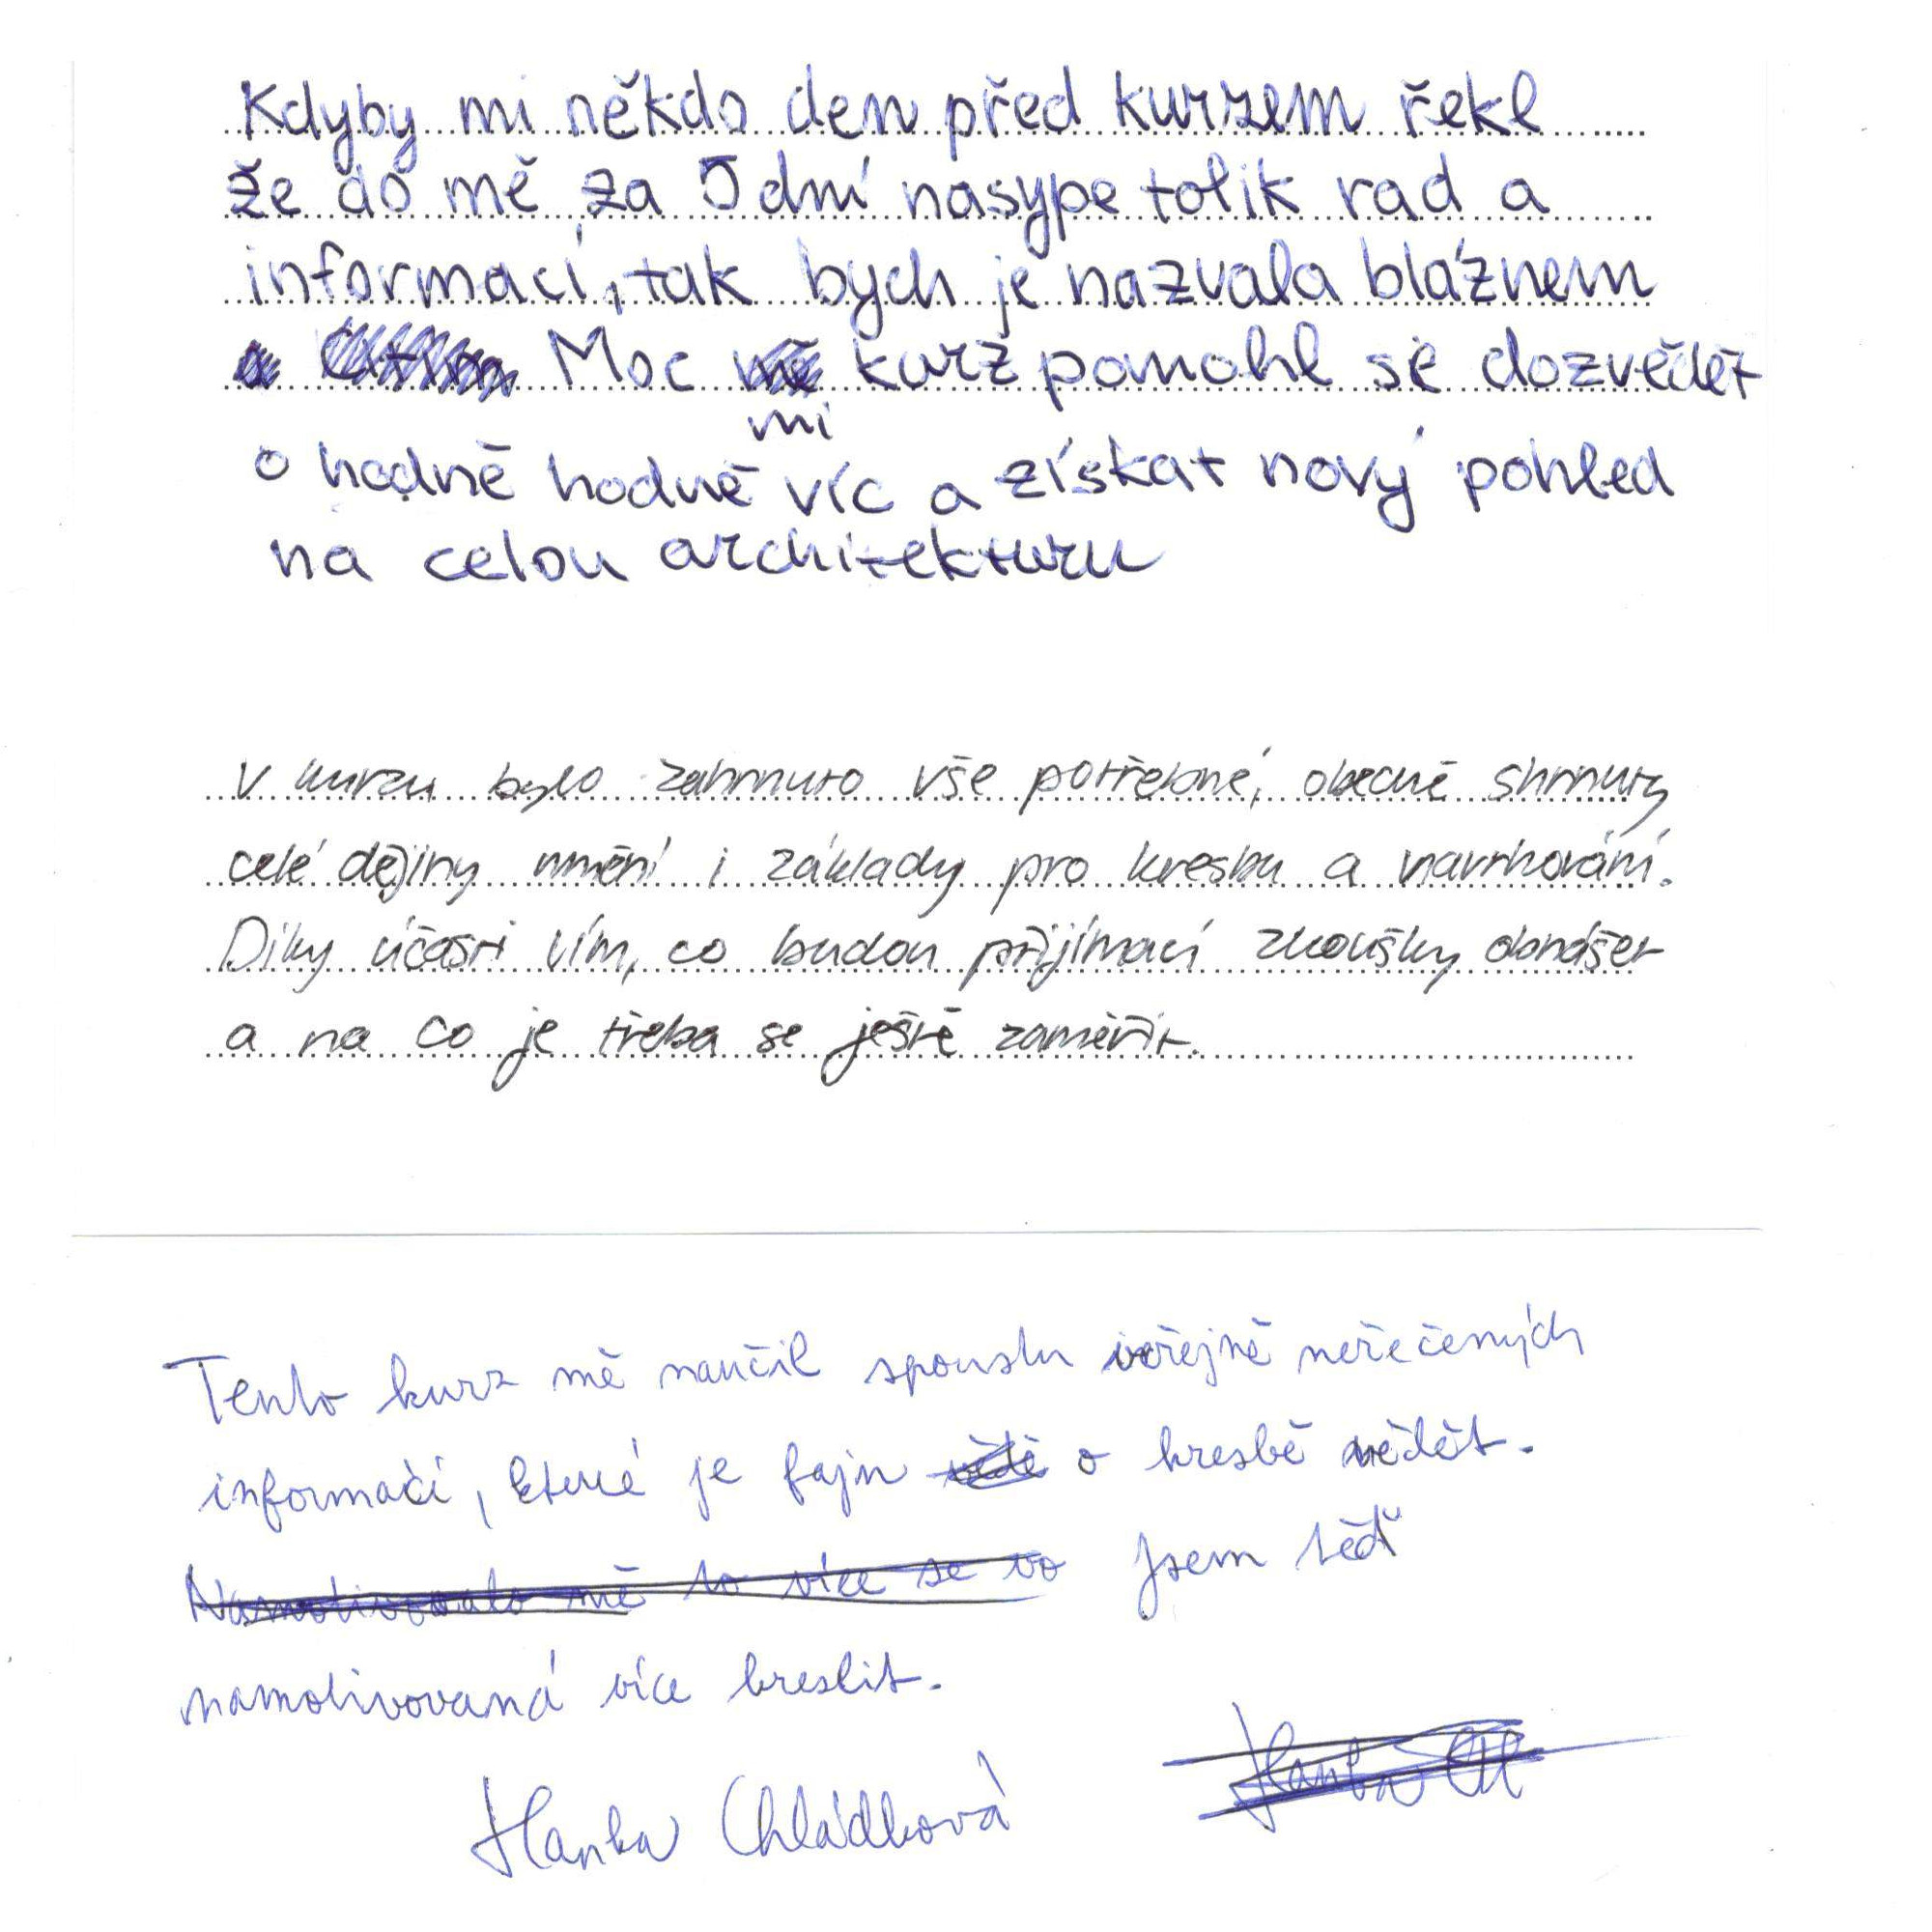 Kdyby mi někdo den před kurzem řekl
že do mě za 5 dní nasype tolik rad a
informací, tak bych je nazvala bláznem
Moc kurz pomohl se dozvědět
mi
o hodně hodně víc a získat nový pohled
na celou architekturu
V kurzu bylo zahrnuto vše potřebné, obecně shrnuty
celé dějiny umění i základy pro kresbu a navrhování.
Díky účasti vím, co budou přijímací zkoušky obnášet
a na co je třeba se ještě zaměřit.
Tento kurz mě naučil spoustu veřejně neřečených
informací, které je fajn o kresbě vědět.
Namotivovalo mě to více se vo Jsem teď
namotivovaná více kreslit.
Hanka Chládková